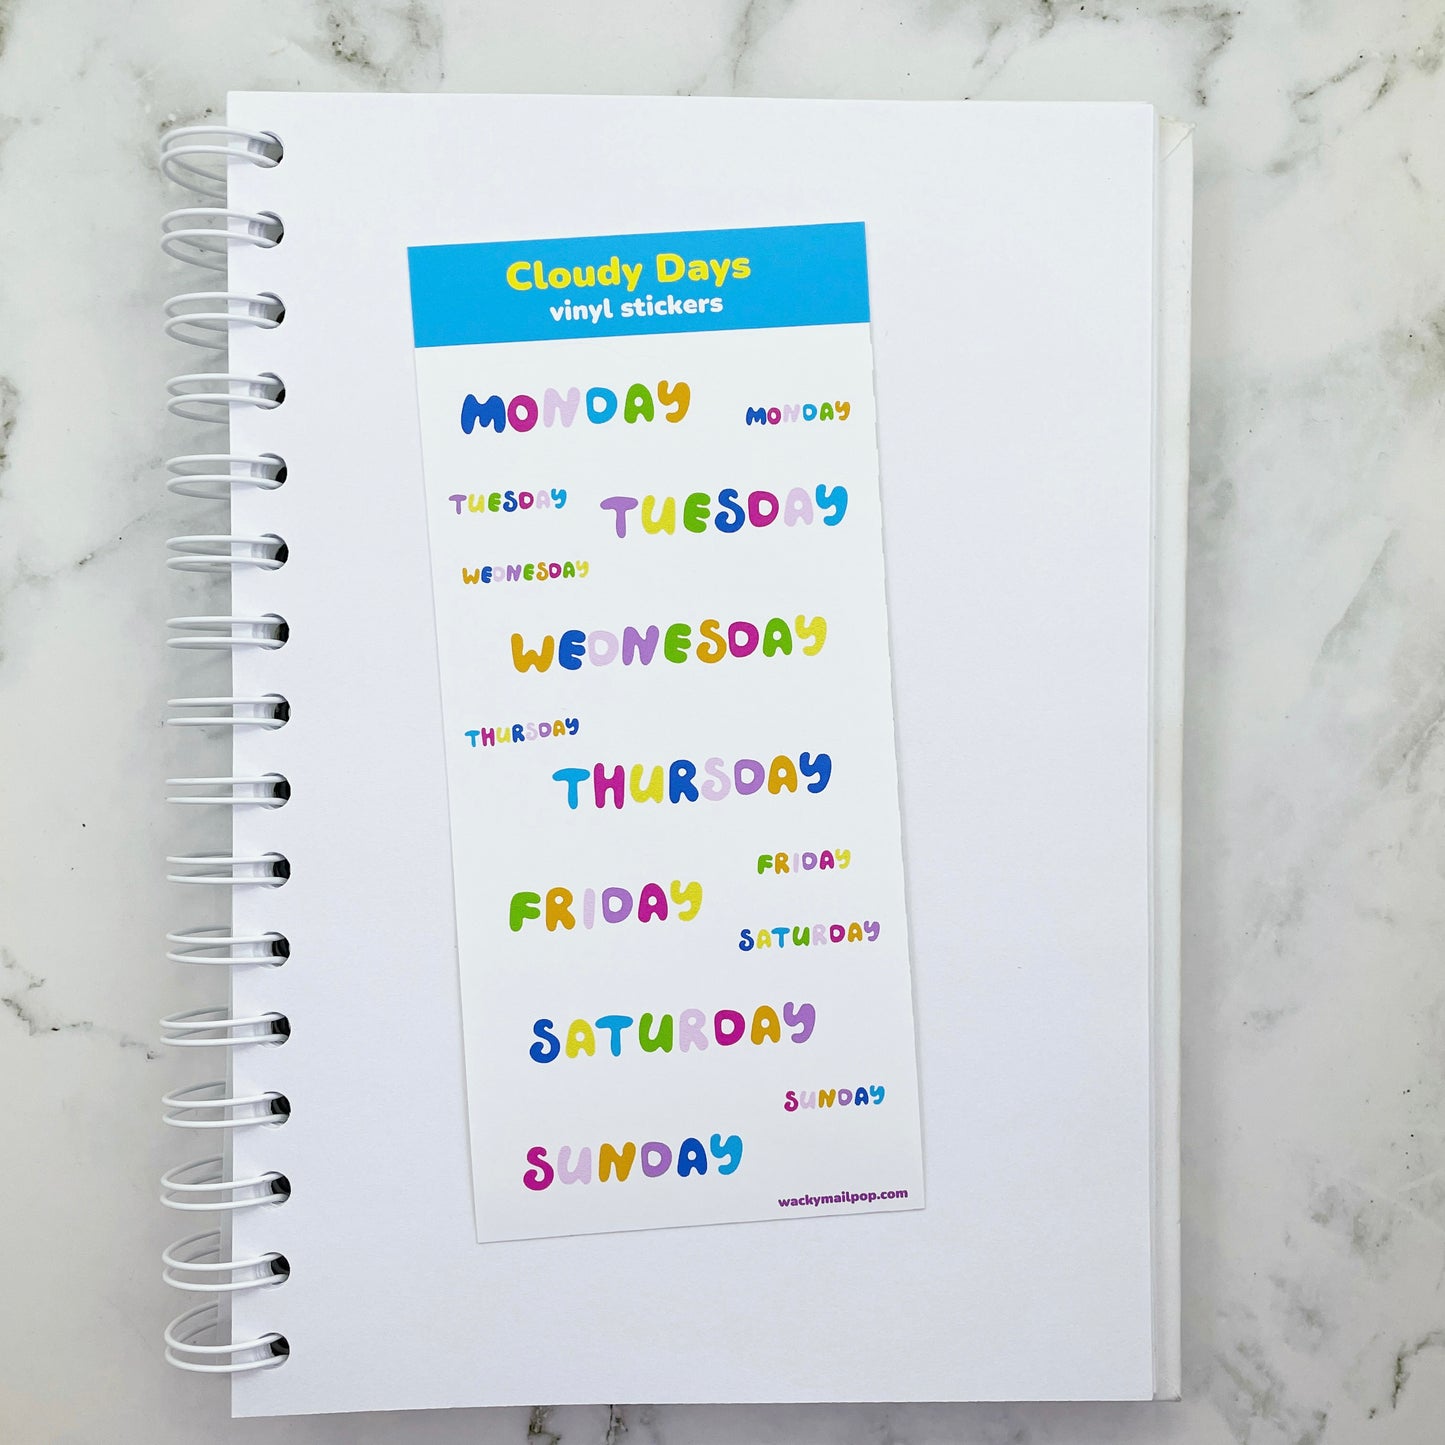 Cloudy Days
vinyl stickers
MONDAY MONDAY
TUESDAY TUESDAY
WEDNESDAY
WEDNESDAY
THURSDAY
THURSDAY
FRIDAY
FRIDAY
SATURDAY
SATURDAY
SUNDAY
SUNDAY
wackymailpop.com